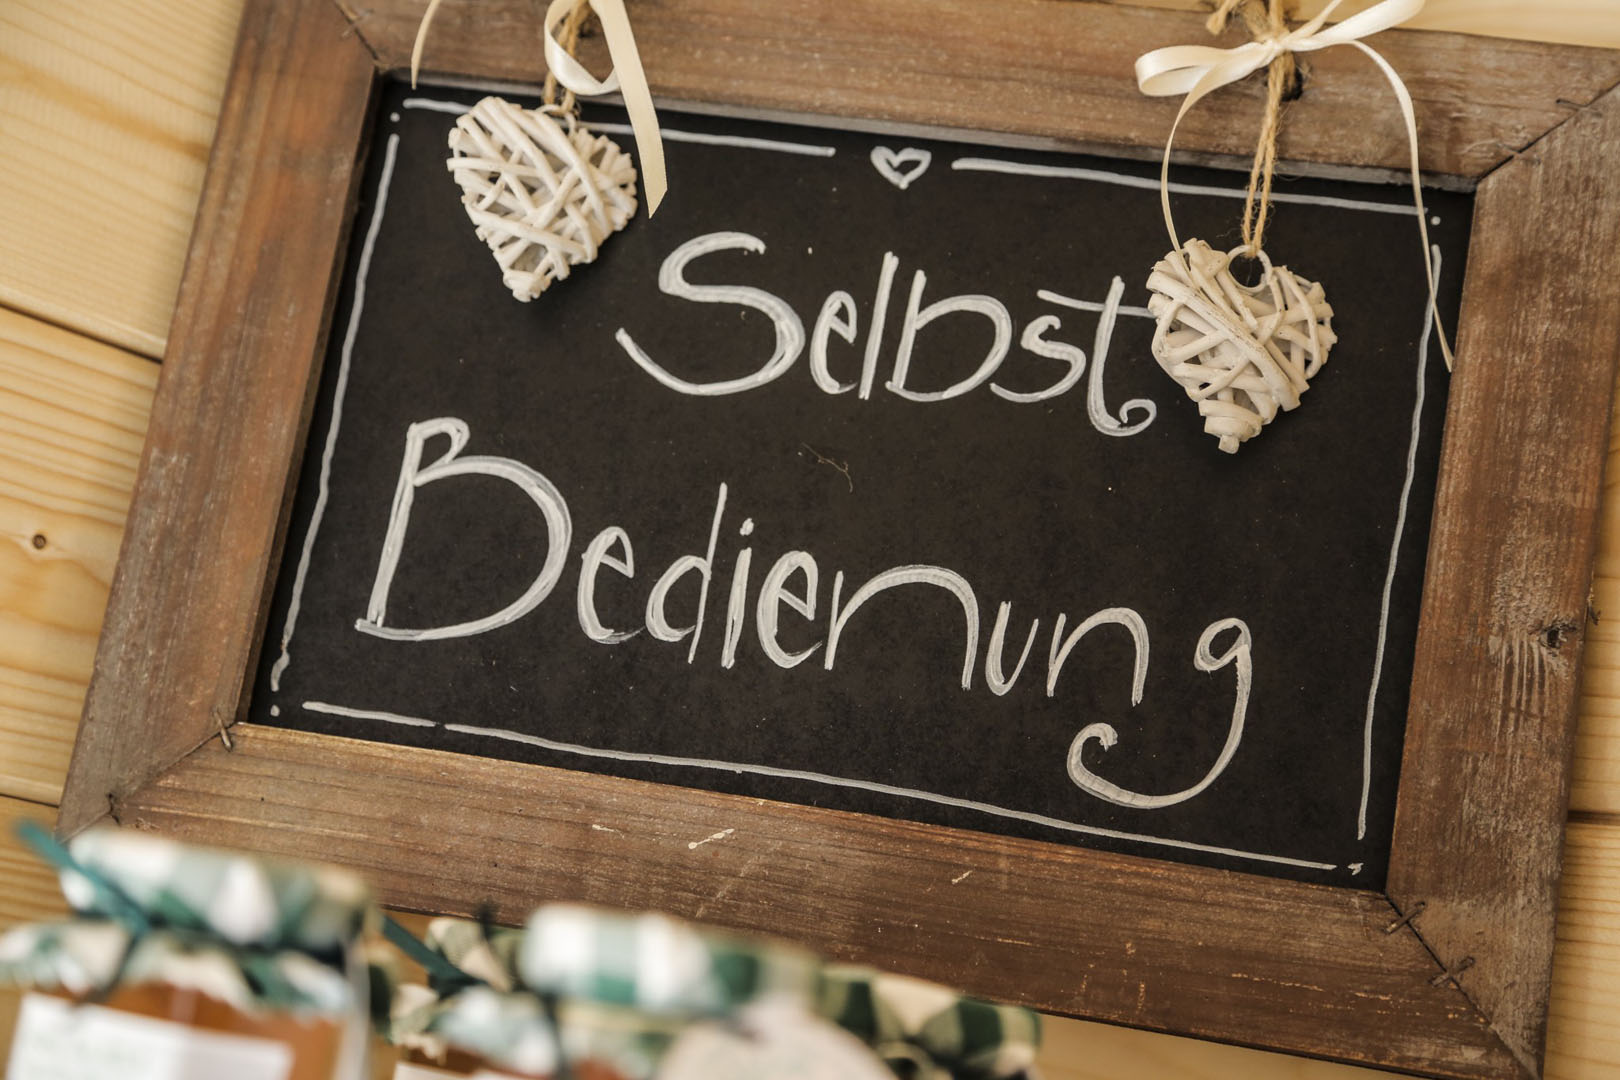 Selbst
Bedienung